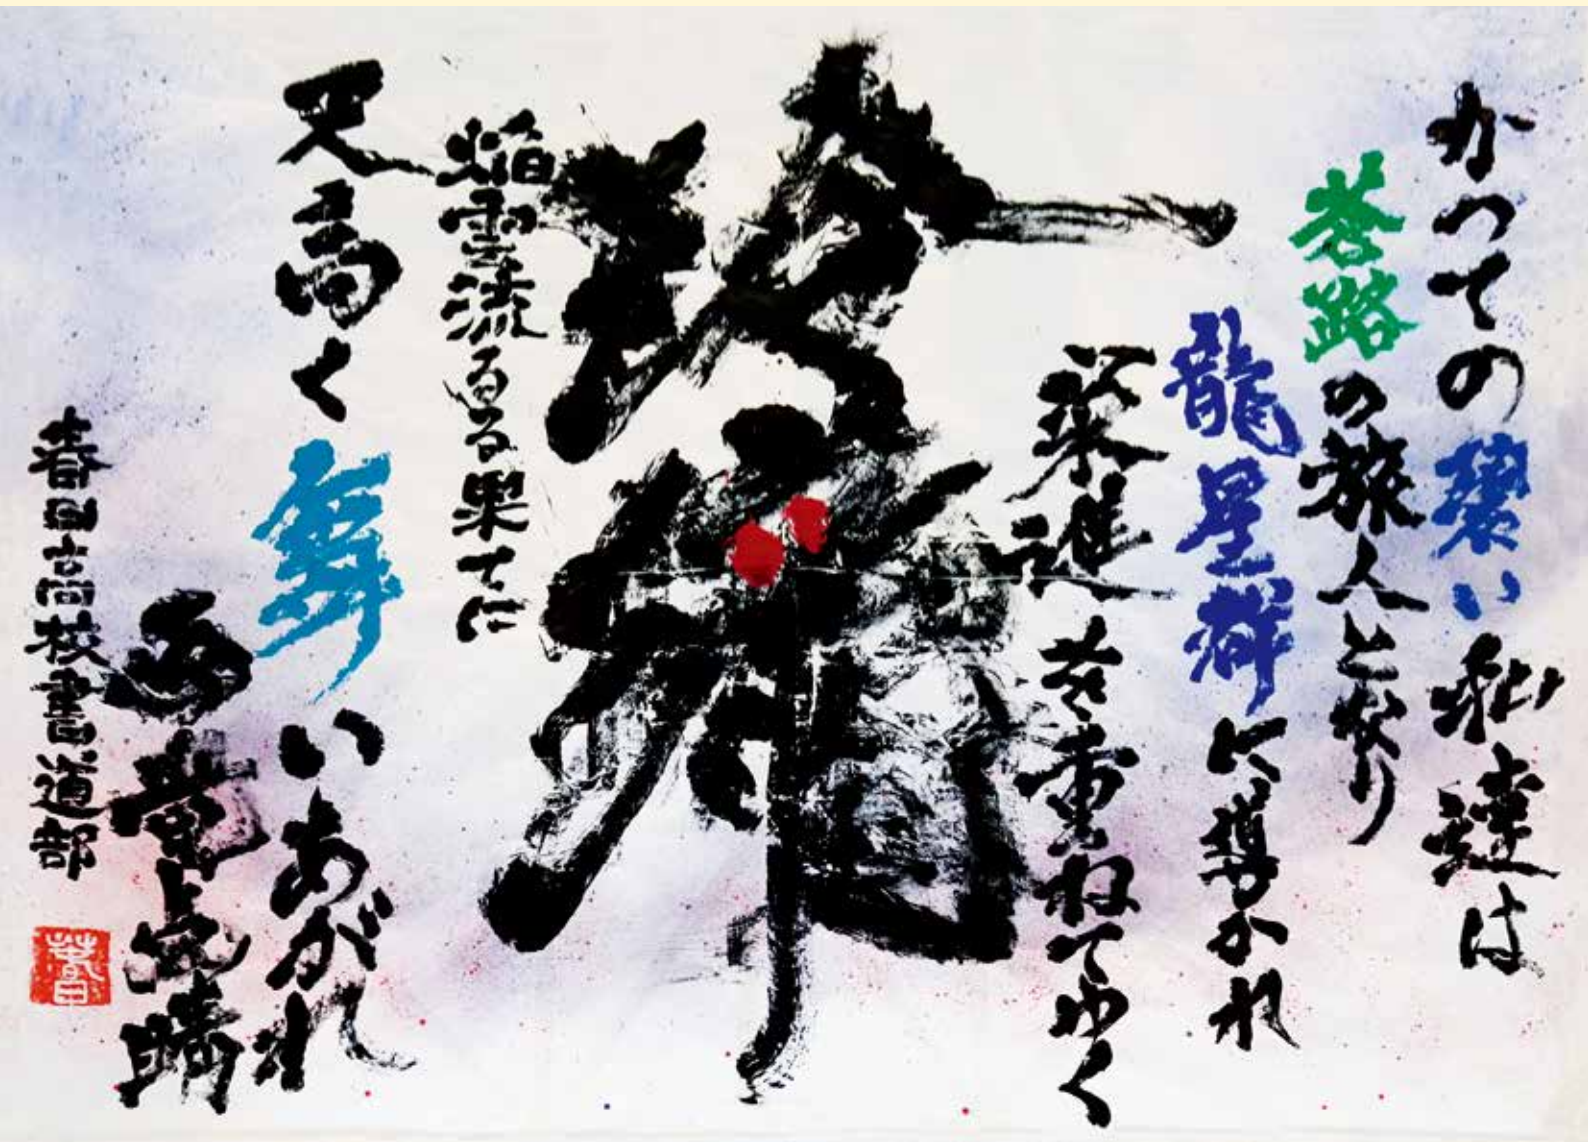 かつての碧い私達は
蒼路の旅人となり
龍星群に導かれ
進を重ねてゆく
焔雲流るる果てに
天高く舞いあがれ
画竜点睛
春日高校書道部
春日